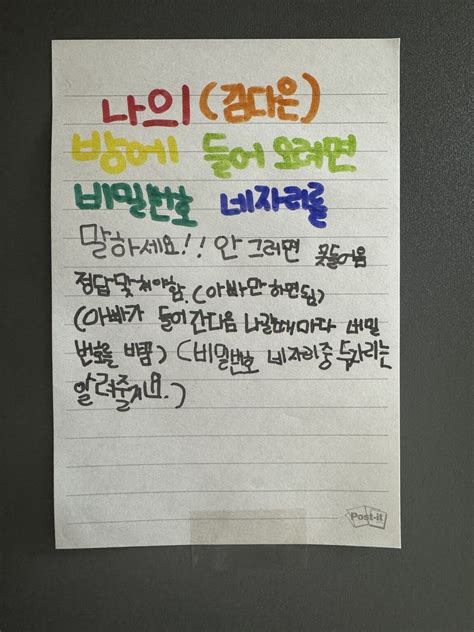 나의 (김다은)
방에 들어 오려면
비밀번호 네자리를
말하세요!! 안 그러면 못들어옴
정답 맞춰야함. (아빠만 하면됨)
(아빠가 들어간다음 나갈때마다 비밀
번호를 바뀜) (비밀번호 네자리중 두자리는
알려줄지요.)
Post-it